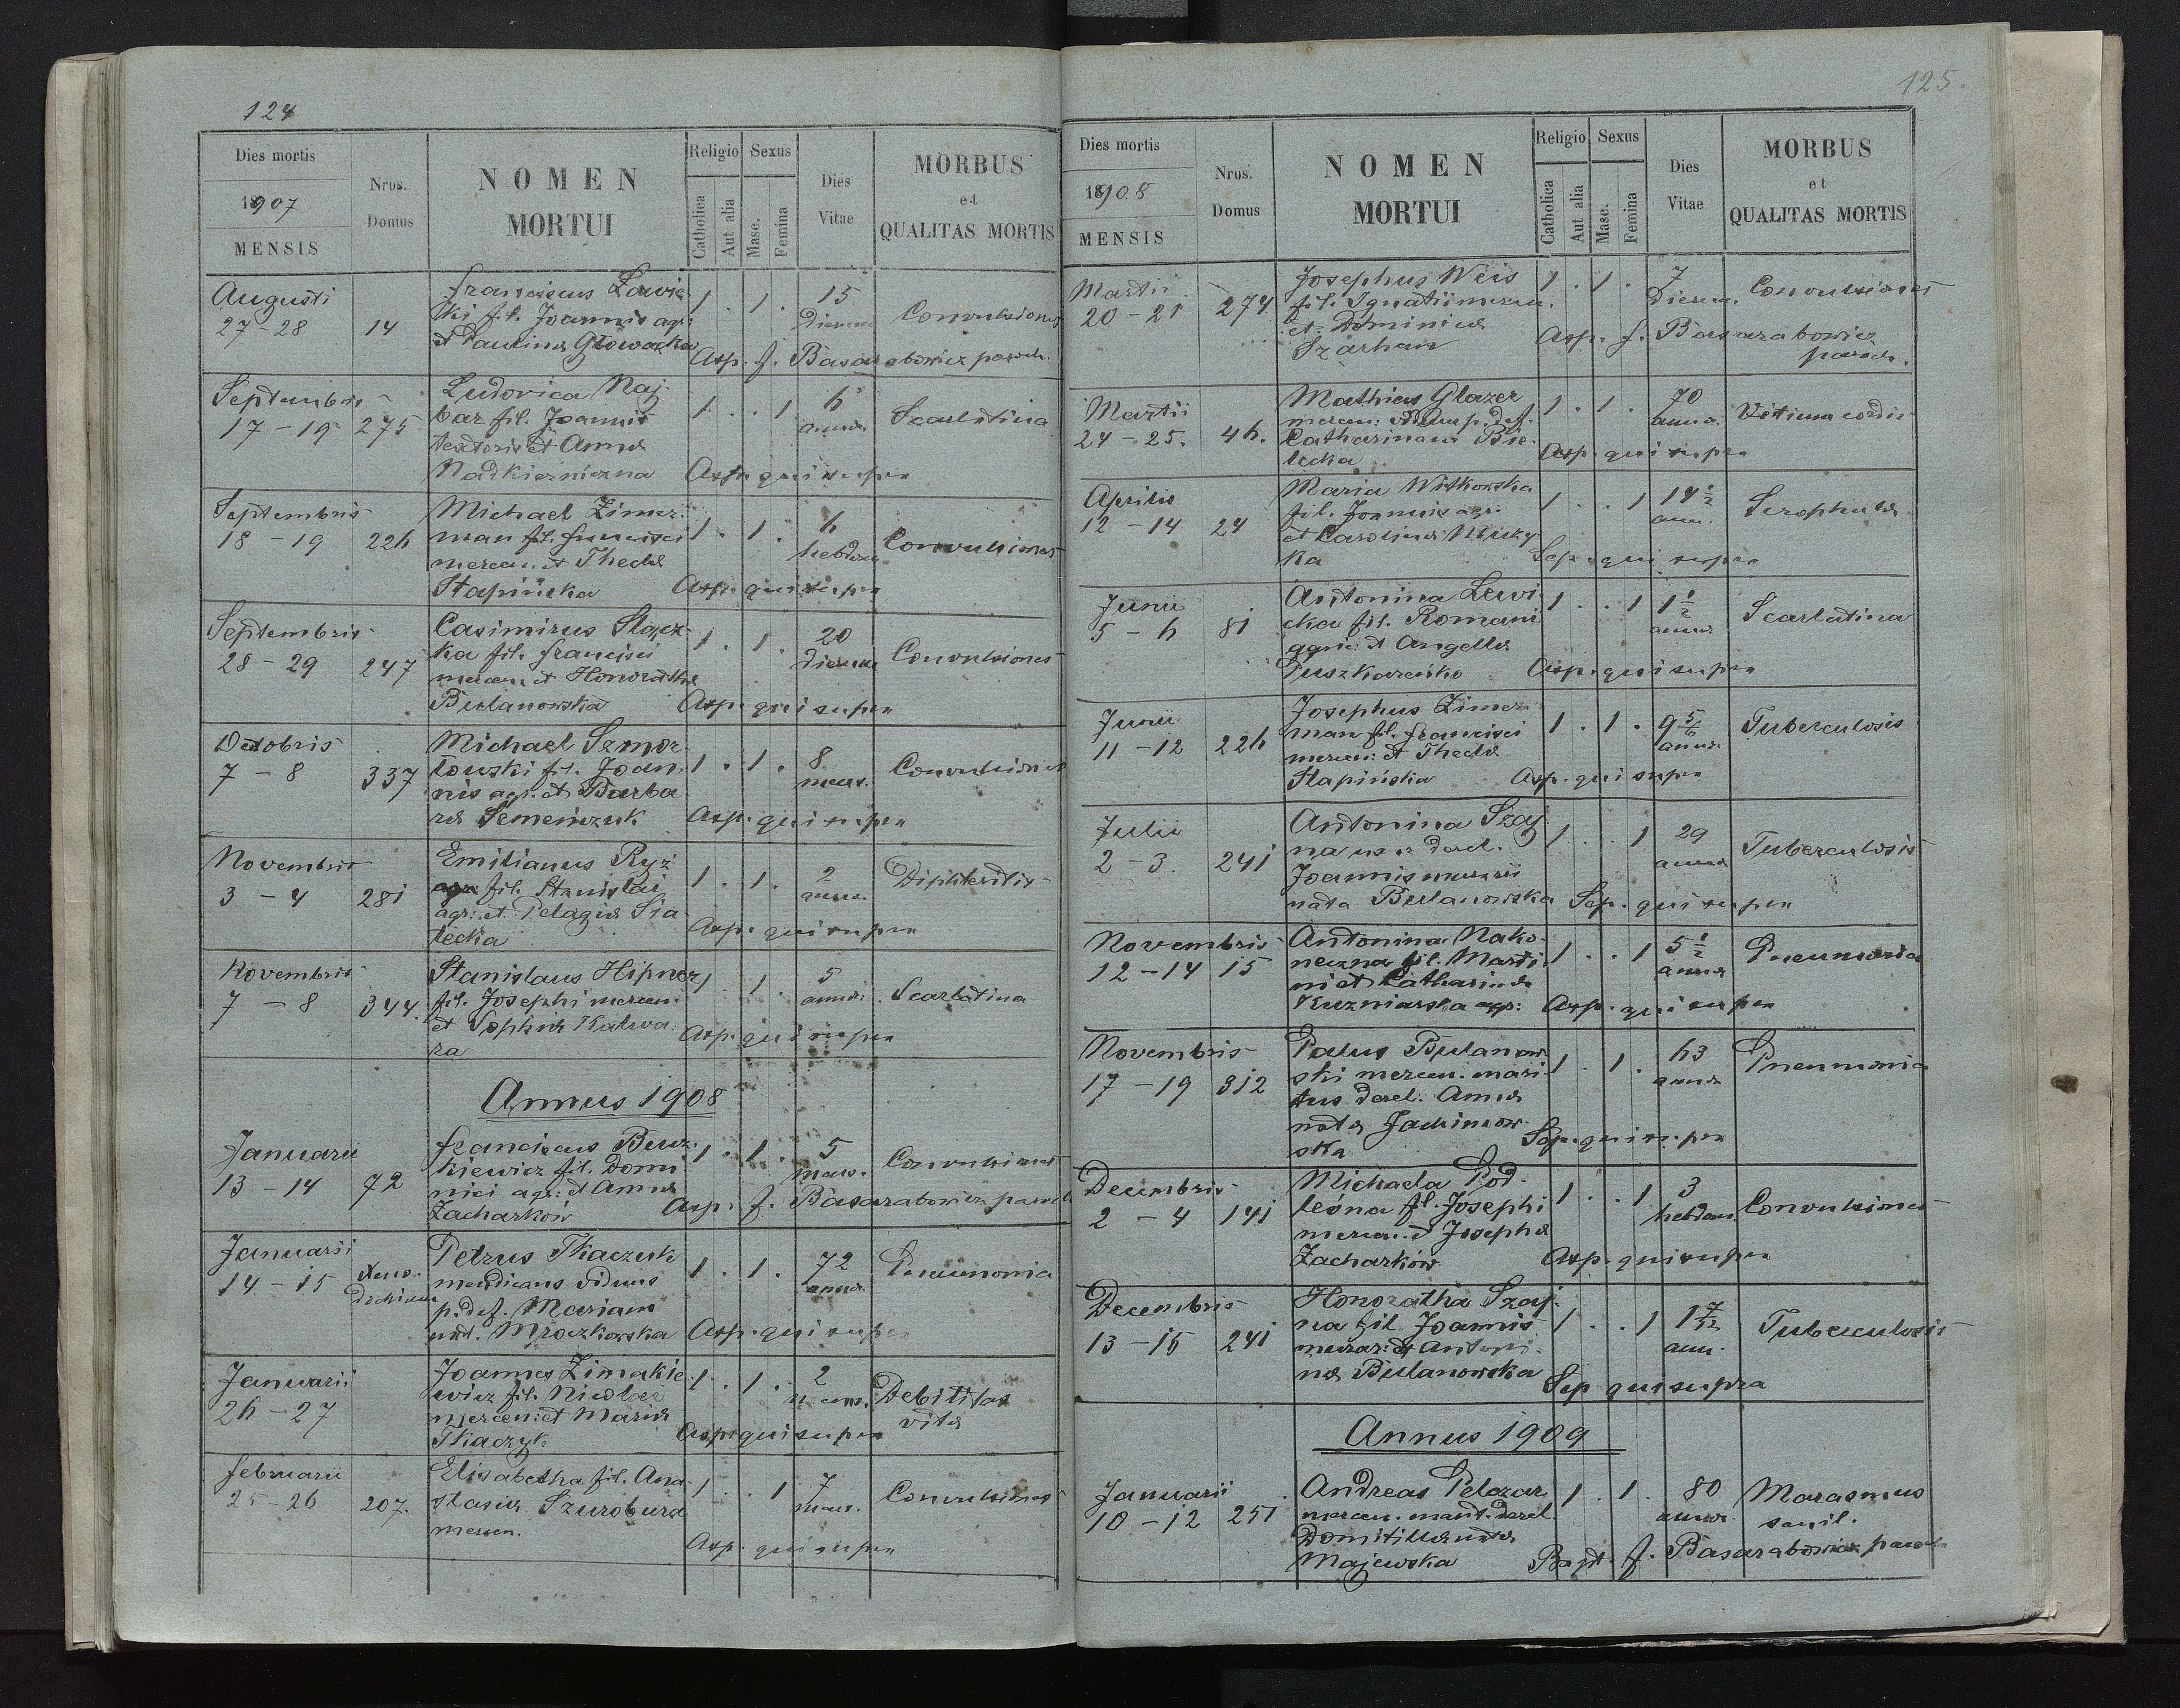 124
Dies mortis
1907
MENSIS
Nrus.
Domus
NOMEN
MORTUI
Religio
Catholica
Aut alia
Sexus
Masc.
Femina
Dies
Vitae
MORBUS
et
QUALITAS MORTIS
Augusti
27-28 14
Franciscus Lewic-
ki fil. Joannis agr:
et Paulinæ Głowacka
1 . 1 . 15
dierum
Convulsiones
Asp. J. Basarabowicz paroch.
Septembris
17-19 275
Ludovica Naj-
bar fil. Joannis
textoris et Annæ
1 . . 1 6
annor.
Scarlatina
Asp. qui supra
Septembris
18-19 226
Michael Zimer-
man fil. Francisci
mercen. et Theclæ
Stapińska
1 . 1 . 6
hebdom.
Convulsiones
Asp. qui supra
Septembris
28-29 247
Casimirus
ka fil. Francisci
mercen. et Honorathæ
Bulanowska
1 . 1 . 20
dierum
Convulsiones
Asp. qui supra
Octobris
7-8 337
Michael Szmor-
łowski fil. Joan-
nis agr. et Barba-
ræ Semeńczuk
1 . 1 . 8
mens.
Convulsiones
Asp. qui supra
Novembris
3-4 281
Emilianus Ryż
fil. Stanislai
agr: et Pelagiæ Sia-
lecka
1 . 1 . 2
annor.
Diphteritis
Asp. qui supra
Novembris
7-8 344.
Stanislaus Hipner
fil. Josephi mercen.
et Sophiæ Kalwa-
ra
1 . 1 . 5
annor.
Scarlatina
Asp. qui supra
Annus 1908
Januarii
13-14 72
Franciscus Bucz-
kiewicz fil. Domi
nici agr: et Annæ
Zacharków
1 . 1 . 5
mens.
Convulsiones
Asp. J. Basarabowicz paroch
Januarii
14-15
Petrus Tkaczuk
mendicans viduus
p. def. Mariam
nat. Mroczkowska
1 . 1 . 72
annor.
Pneumonia
Asp. qui supra
Januarii
26-27
Joannes Zimakie-
wicz fil. Nicolai
mercen: et Mariæ
Tkaczyk
1 . 1 . 2
mens.
Debilitas
vitæ
Asp. qui supra
Februarii
25-26 207.
Elisabetha fil. Ana-
stasiæ Szuroburа
mercen.
1 . . 1 7
mens.
Convulsiones
Asp. qui supra
125.
Dies mortis
1908
MENSIS
Nrus.
Domus
NOMEN
MORTUI
Religio
Catholica
Aut alia
Sexus
Masc.
Femina
Dies
Vitae
MORBUS
et
QUALITAS MORTIS
Martii
20-21 274.
Josephus Weis
fil. Ignatii mercen.
et Dominicæ
Szarhan
1 . 1 . 7
dierum.
Convulsiones
Asp. J. Basarabowicz
paroch.
Martii
24-25. 46.
Mathias Glazer
mercen: viduus p. def.
Catharinam Bie-
lecka
1 . 1 . 70
anno.
Vitium cordis
Asp. qui supra
Aprilis
12-14 24
Maria Witkowska
fil. Joannis agr:
et Carolinæ Muzy-
ka
1 . . 1 14 1/2
ann.
Scrophulæ
Sep. qui supra
Junii
5-6 81
Antonina Lewi-
cka fil. Romani
agric: et Angellæ
Puszkareńko
1 . . 1 1 1/2
annor
Scarlatina
Asp. qui supra
Junii
11-12 226
Josephus Zimer-
man fil. Francisci
mercen: et Theclæ
Stapińska
1 . 1 . 9 5/6
annor
Tuberculosis
Asp. qui supra
Julii
2-3. 241
Antonina Szaj-
na uxor derel.
Joannis murarii
nata Bulanowska
1 . . 1 29
annor
Tuberculosis
Sep. qui supra
Novembris
12-14 15
Antonina Nako-
neczna fil. Marti-
ni et Catharinæ
Kuzniarska agr:
1 . . 1 5 1/2
annor
Pneumonia
Asp. qui supra
Novembris
17-19 312
Palus Bulanow-
ski mercen. mari-
tus derel. Annæ
natæ Jachimow-
ska
1 . 1 . 63
annor
Pneumonia
Sep. qui supra
Decembris
2-4 141
Michaela Pod-
leśna fil. Josephi
mercen. et Josephæ
Zacharków
1 . . 1 3
hebdom.
Convulsiones
Asp. qui supra
Decembris
13-15 241
Honoratha Szaj-
na fil Joannis
murar: et Antoni-
næ Bulanowska
1 . . 1 1 7/12
ann.
Tuberculosis
Sep qui supra
Annus 1909
Januarii
10-12 251
Andreas Pelczar
mercen. marit. derel.
Domitillæ natæ
Majewska
1 . 1 . 80
annor
Marasmus
senil.
J. Basarabowicz paroch